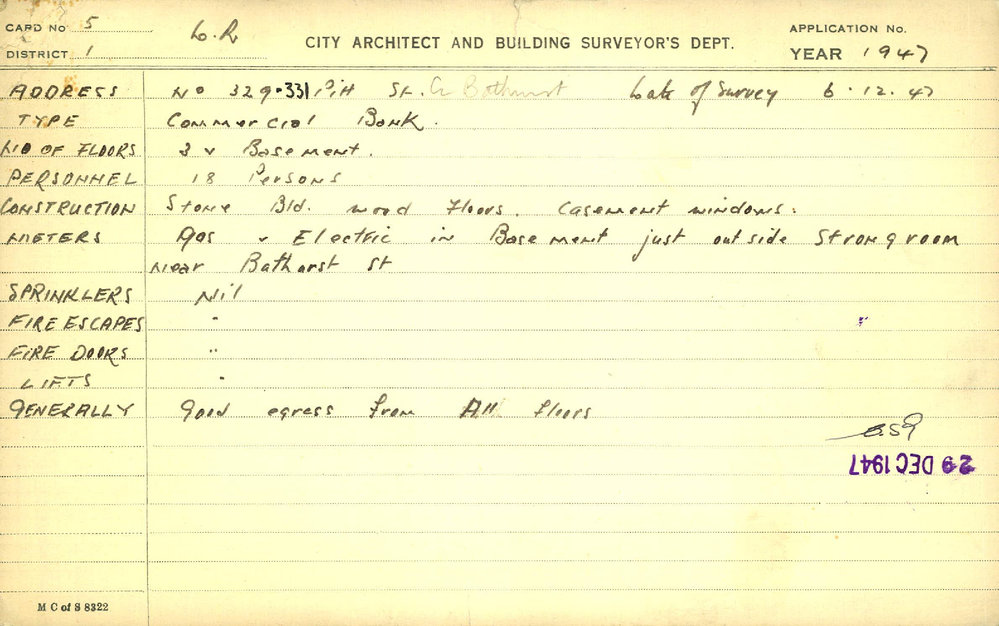 CARD NO 5
DISTRICT 1
L.R
CITY ARCHITECT AND BUILDING SURVEYOR'S DEPT.
APPLICATION No.
YEAR 1947
ADDRESS No 329-331 Pitt St. Cr Bathurst Date of Survey 6.12.47
TYPE Commercial Bank.
NO OF FLOORS 3 & Basement.
PERSONNEL 18 Persons
CONSTRUCTION Stone Bld. wood Floors. Casement windows.
METERS Gas & Electric in Basement just outside Strongroom
near Bathurst St
SPRINKLERS Nil
FIRE ESCAPES "
FIRE DOORS "
LIFTS "
GENERALLY Good egress from All Floors
29 DEC 1947
M C of S 8322